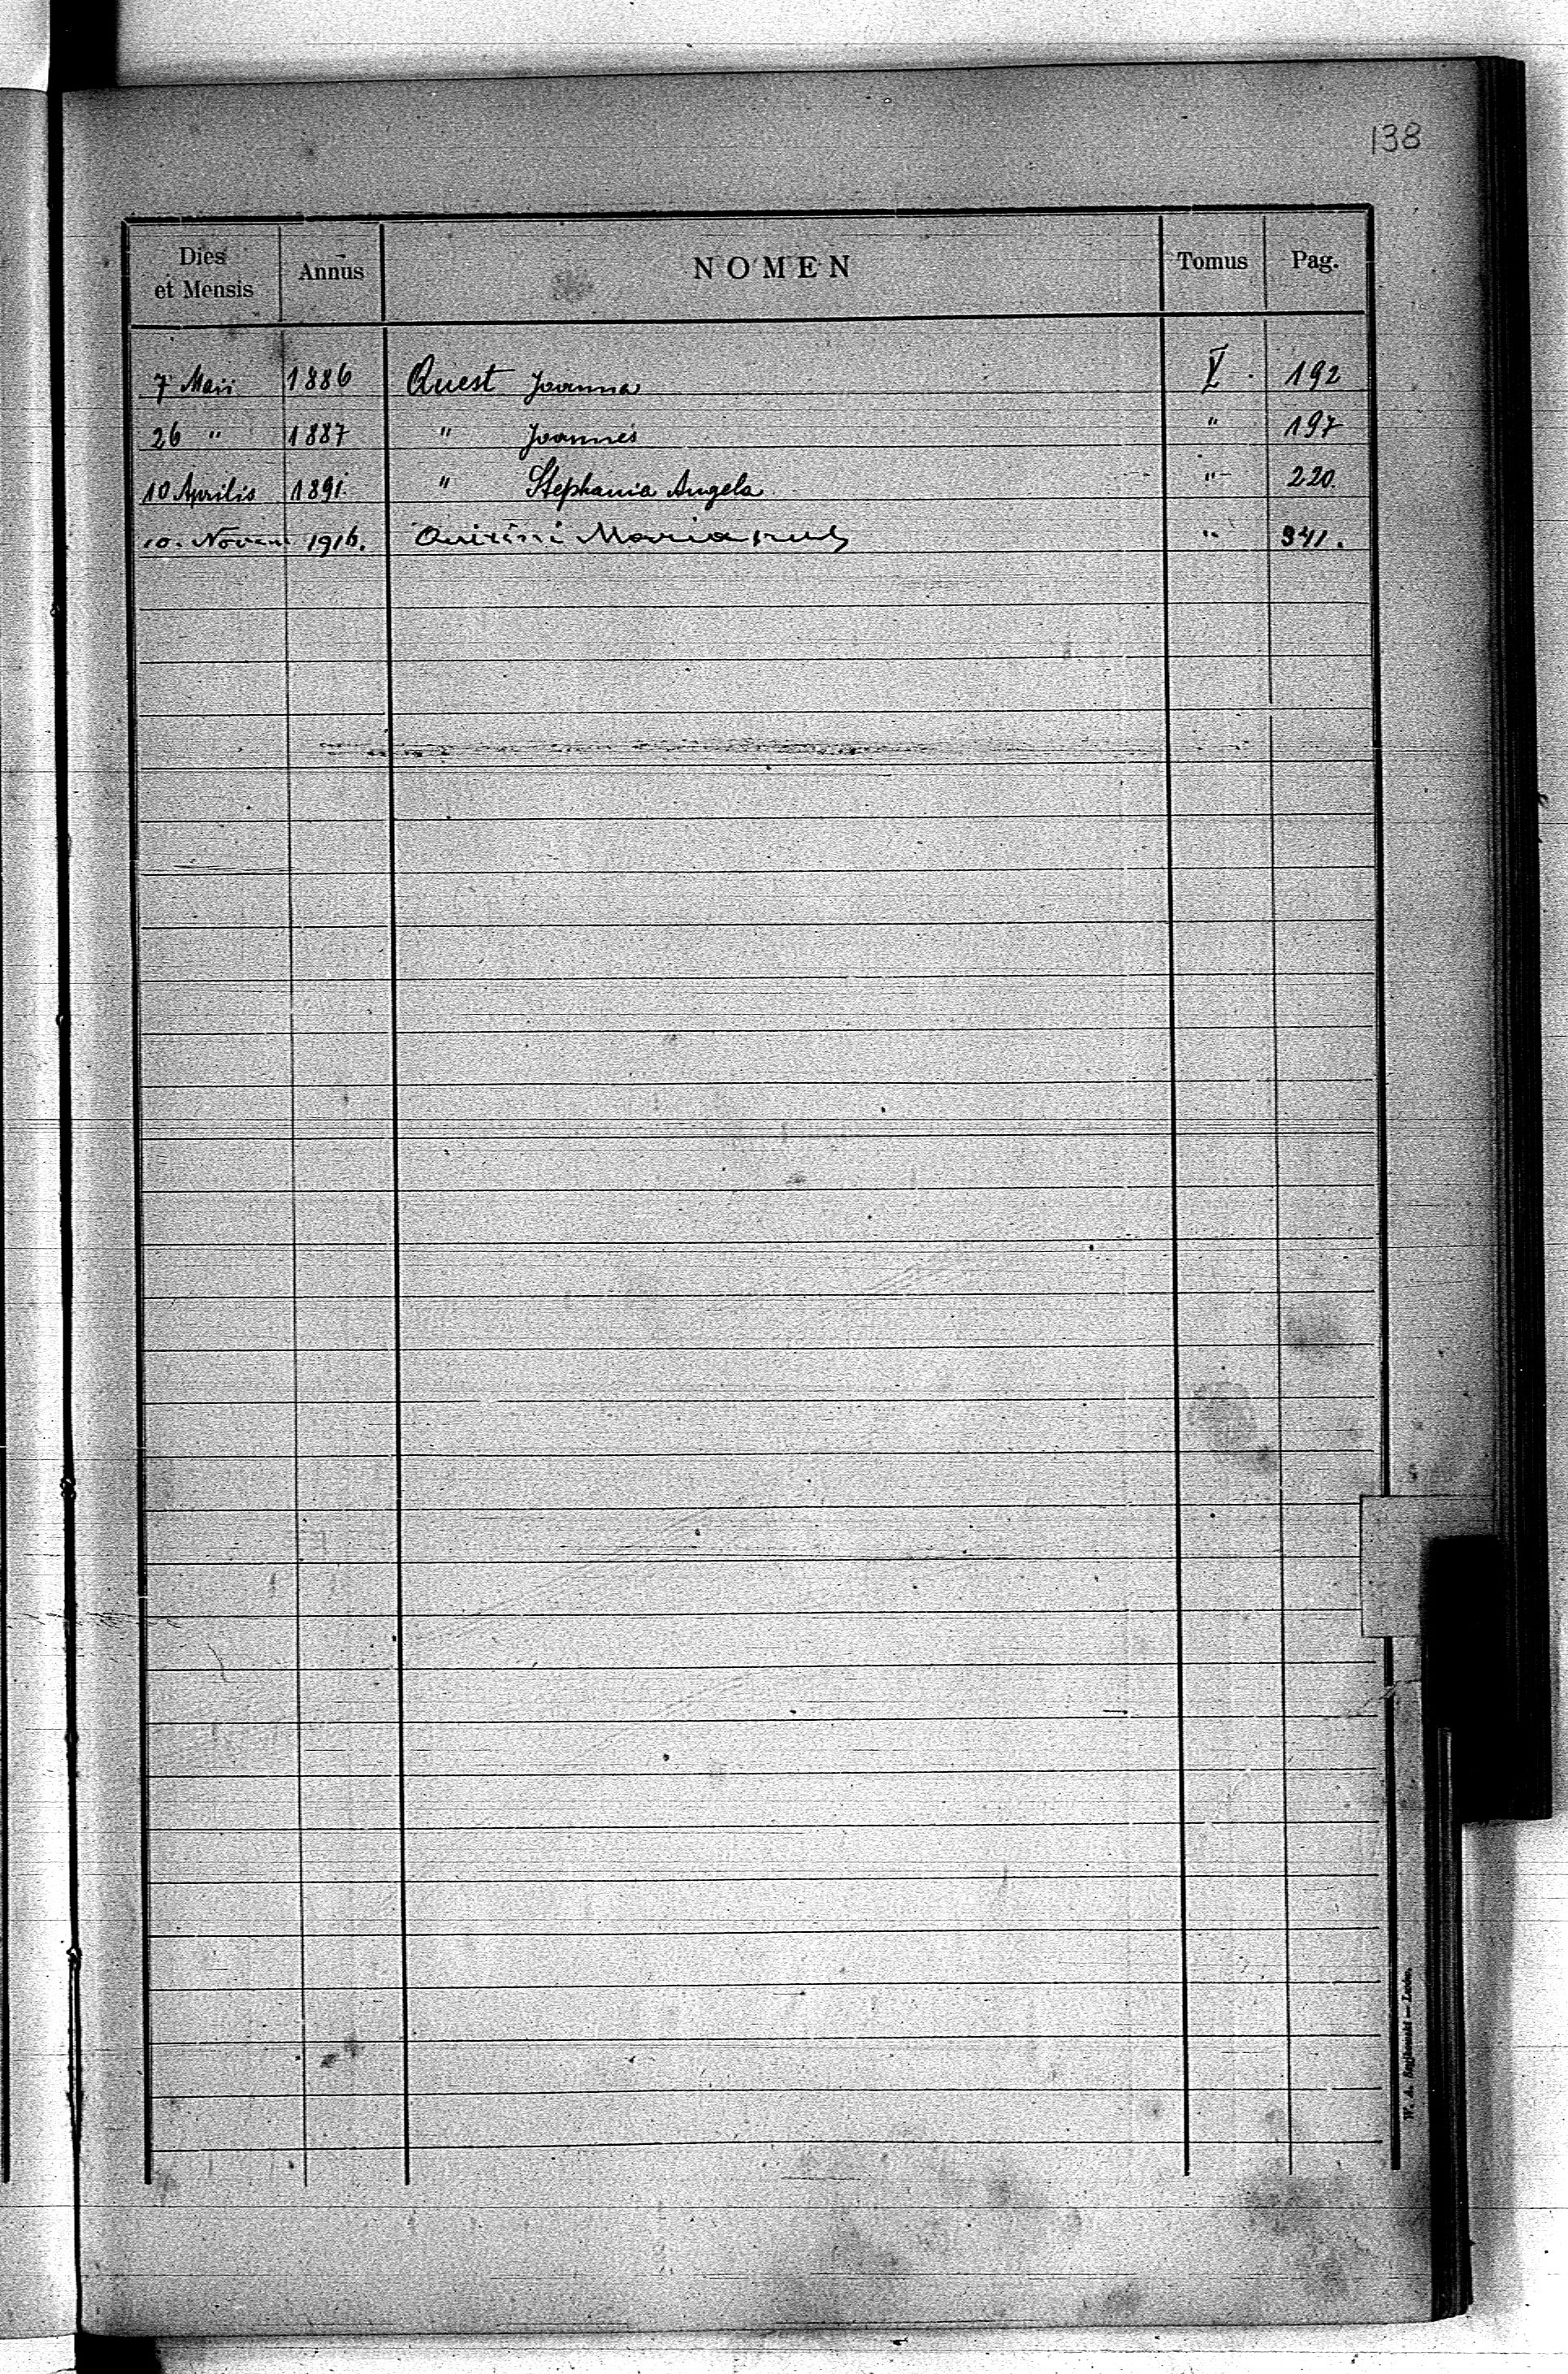 138
Dies et Mensis Annus NOMEN Tomus Pag.
7 Maii 1886 Quest Joanna V. 192
26 " 1887 " Joannes " 197
10 Aprilis 1891 " Stephania Angela " 220.
10. Novem 1916. Quirini Maria " 341.
W. A. — Leiden.